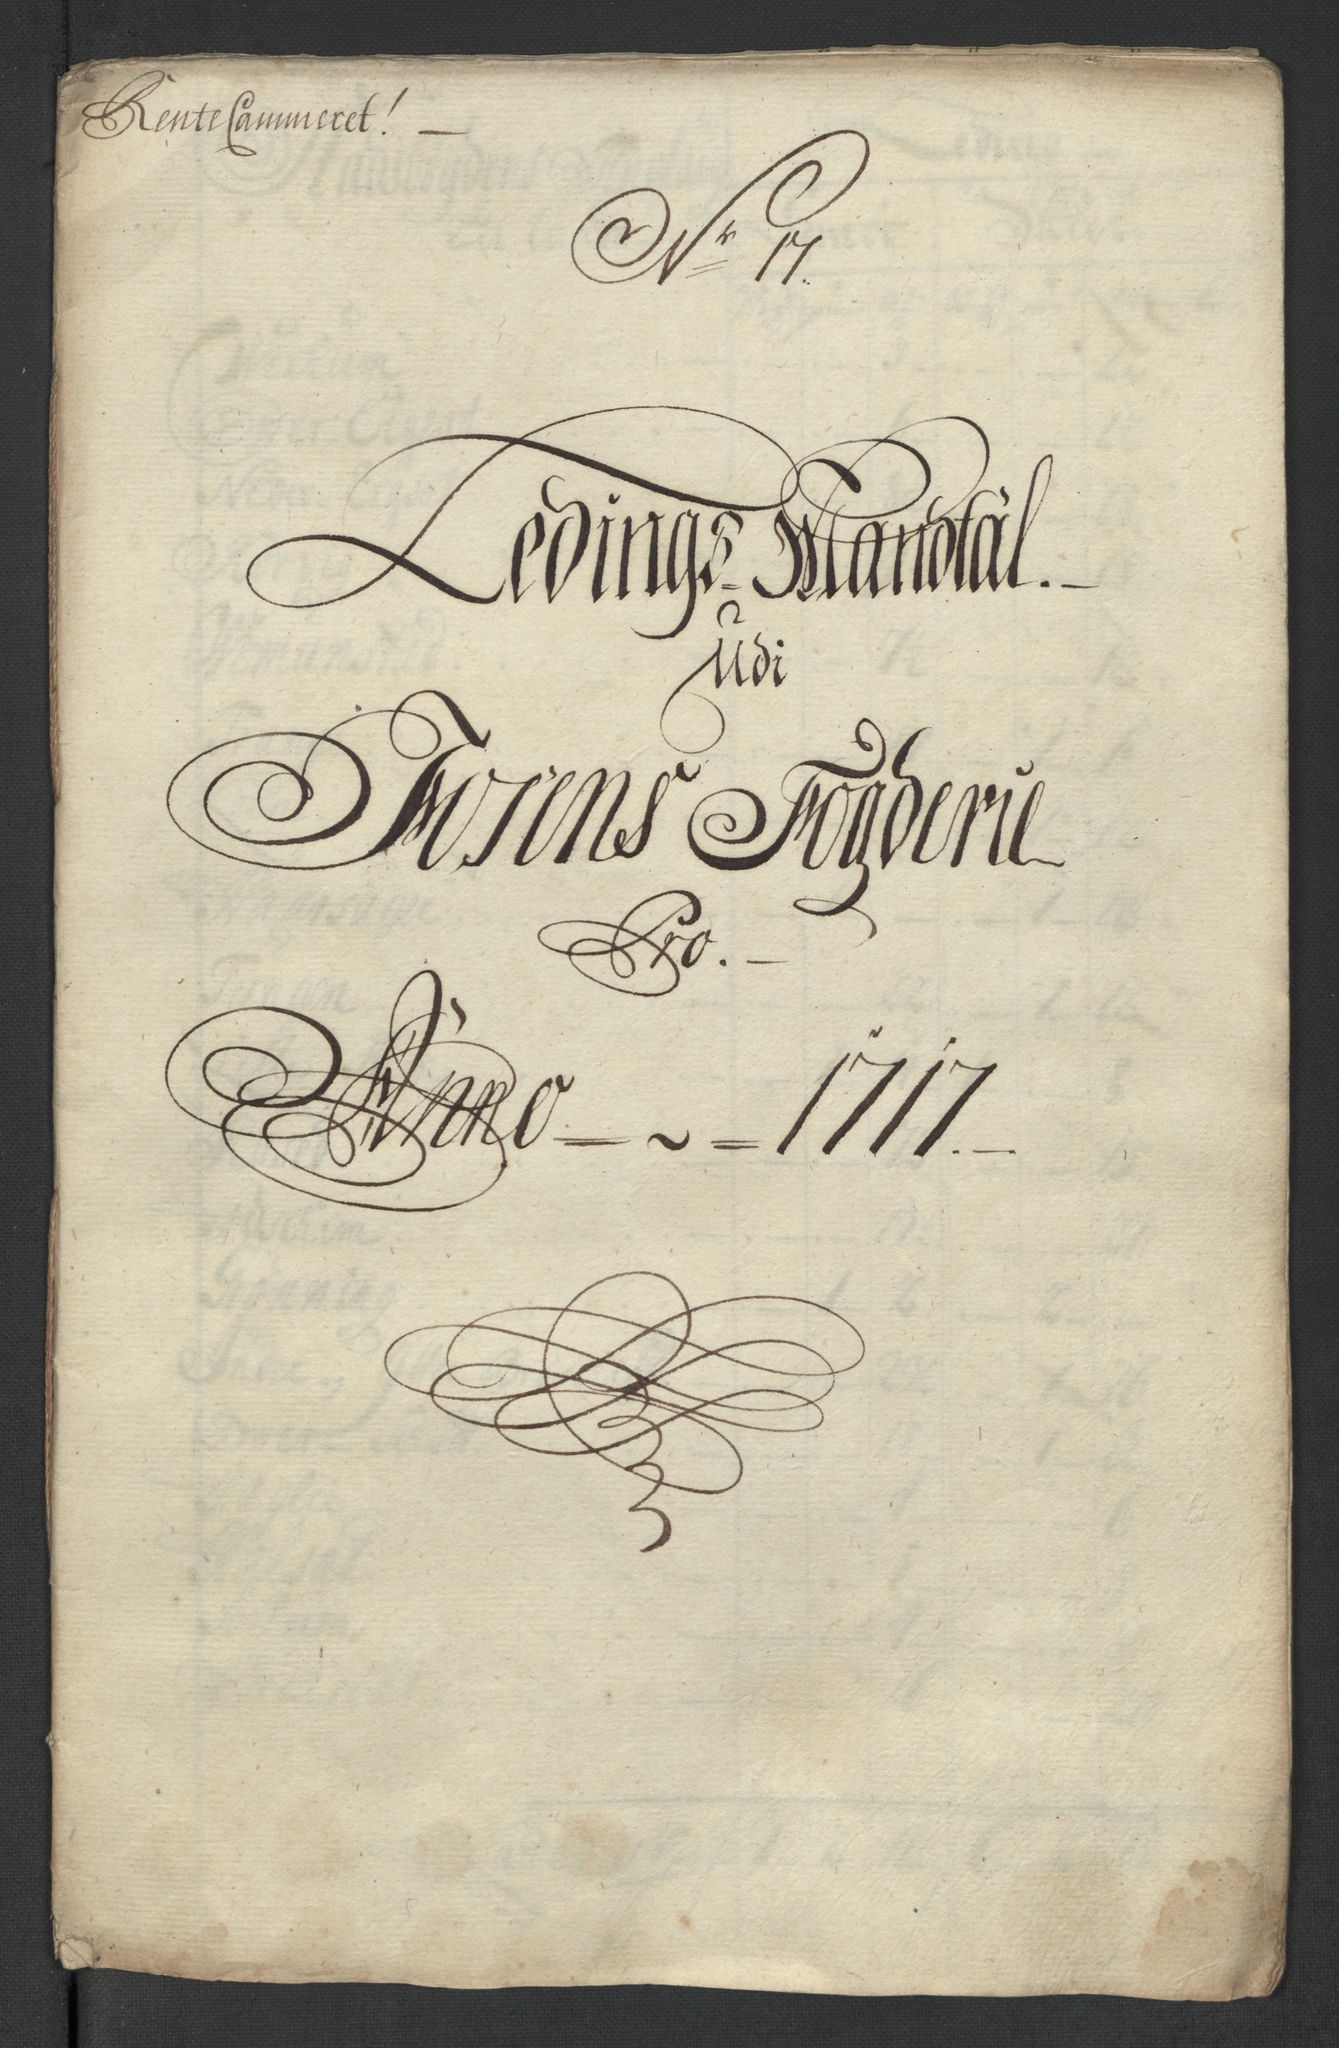 RenteCammeret! —
Nr 17.
Ledings-Mandtal. —
Udi
Fosens Fogderie
Pro. —
Anno — ~ = 1717. —